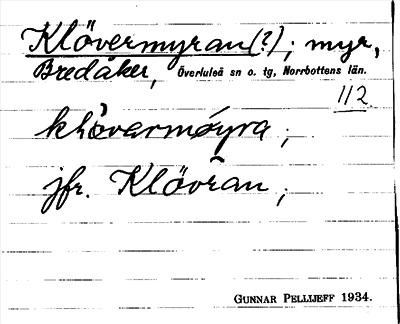 Klövermyran(?); myr,
Bredåker, Överluleå sn o. tg, Norrbottens län.
112
klòvarmóyra ;
jfr. Klövran ;
GUNNAR PELLIJEFF 1934.